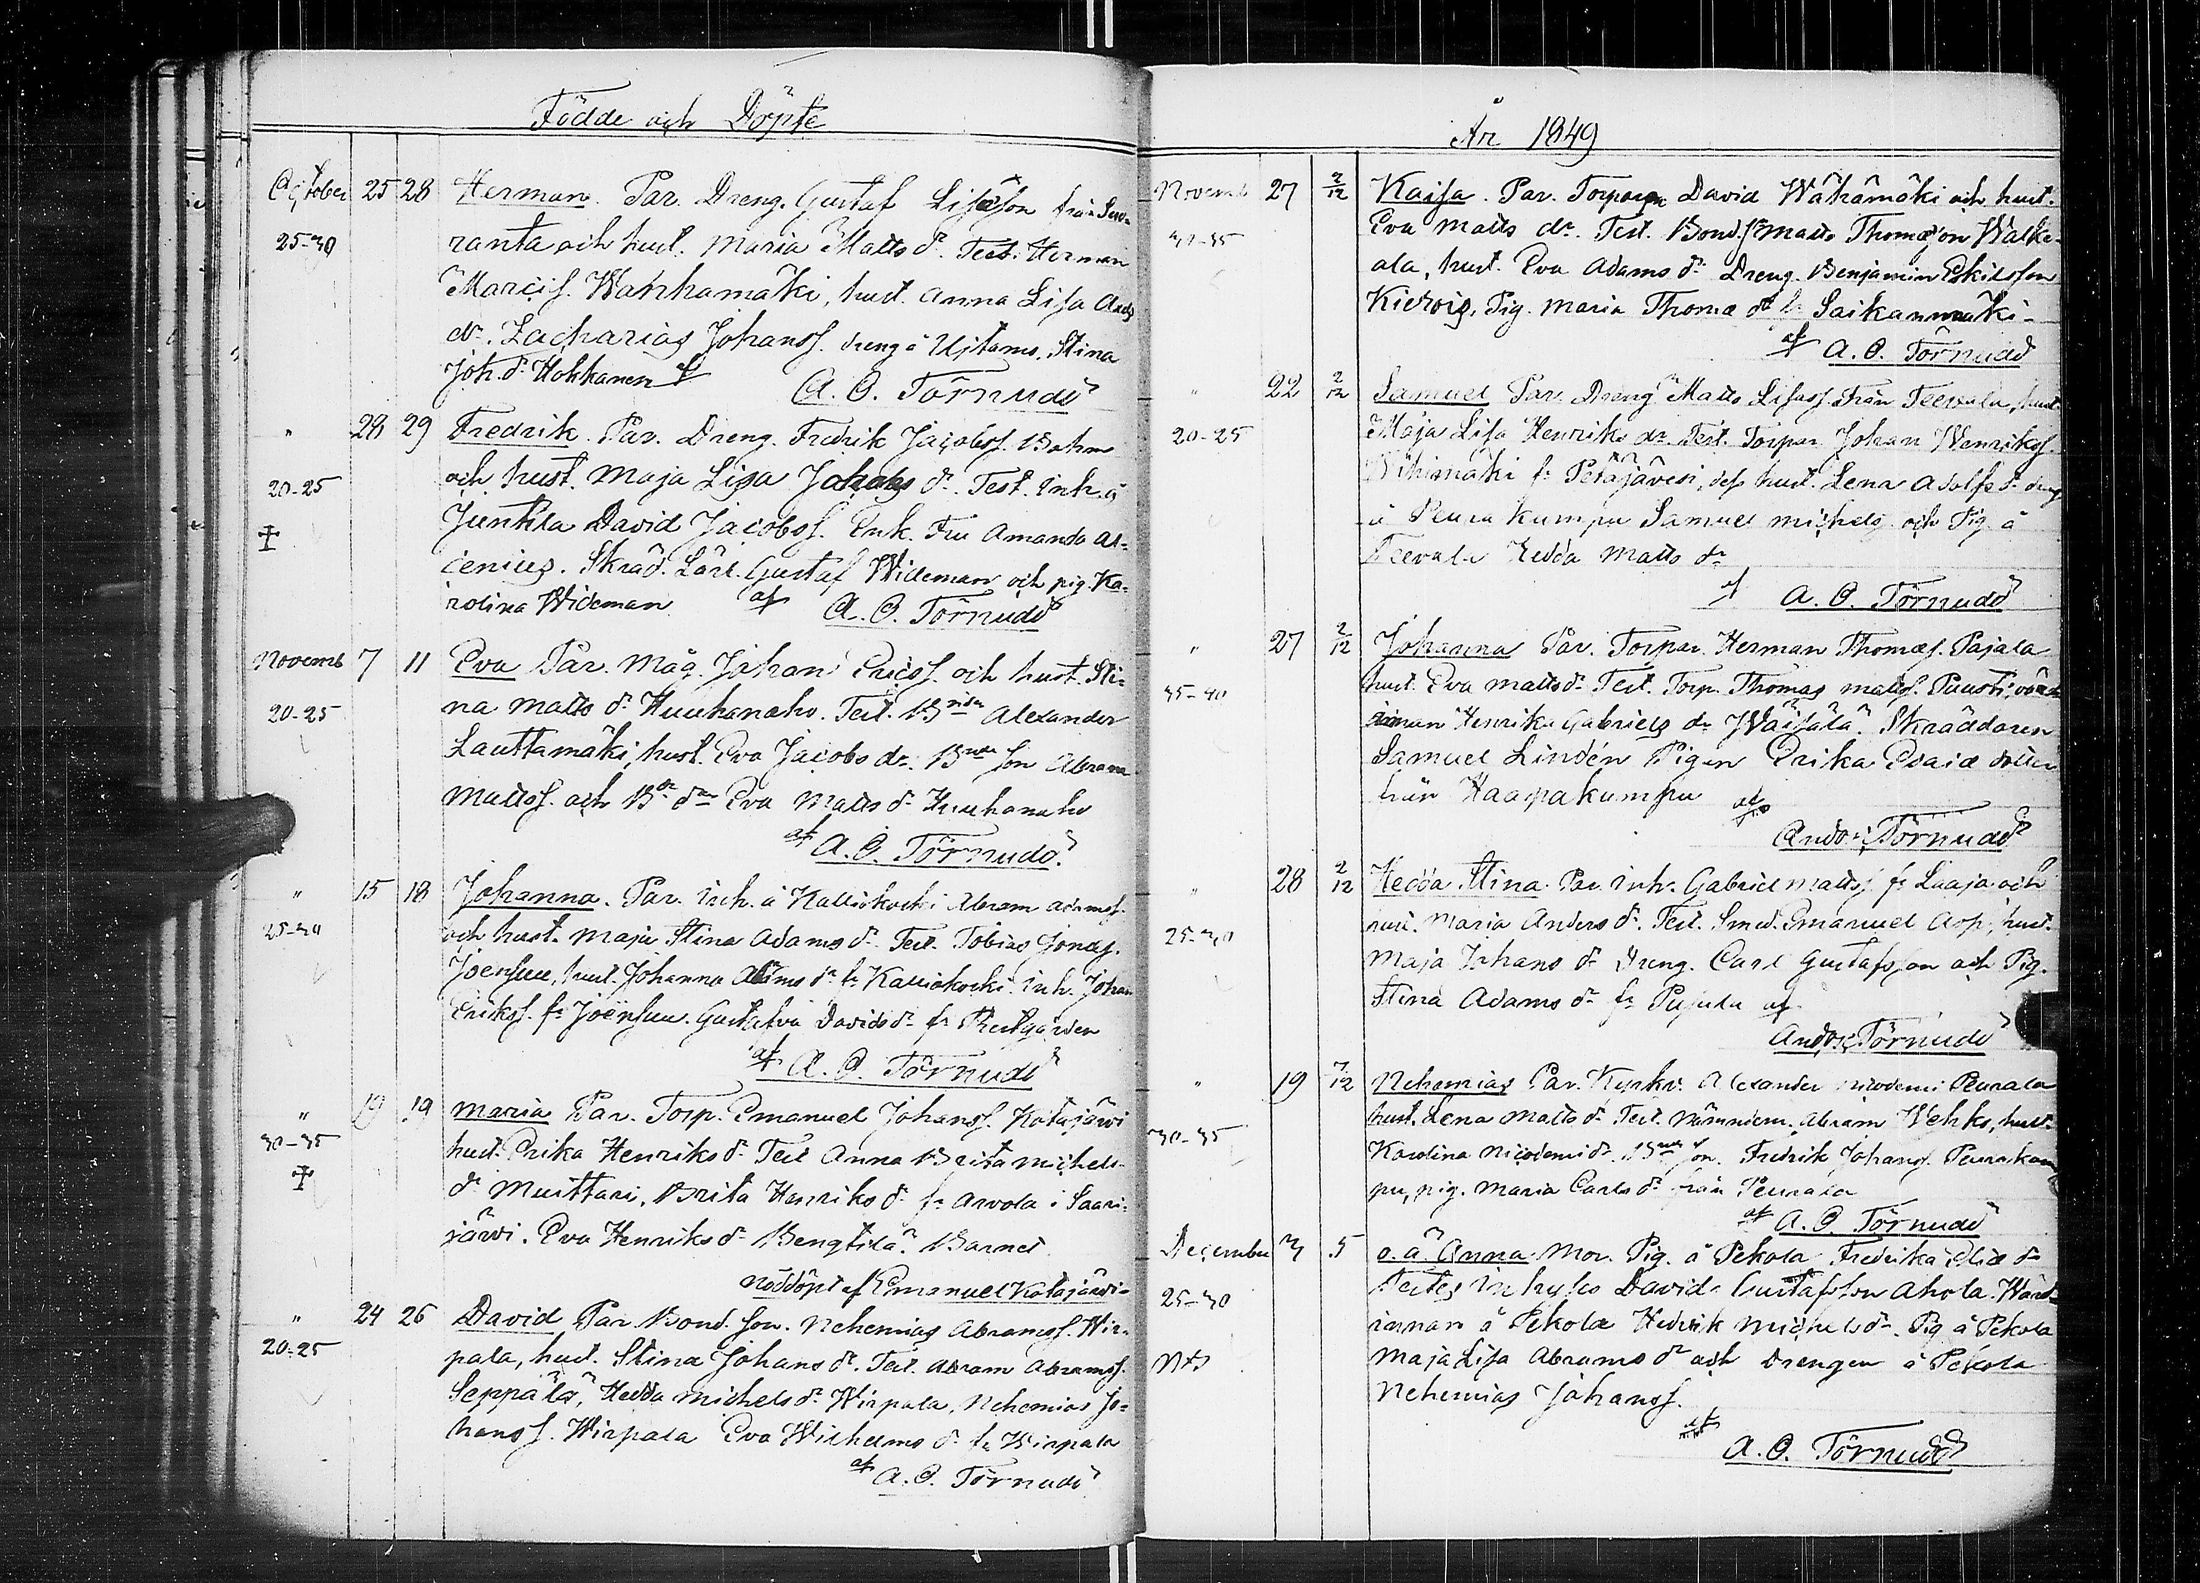 Födde och Döpte
October 25 28 Herman. Par. Dreng. Gustaf Lisæson från
25-30 ranta och hust. Maria Matts dr. Test. Herman
Marcif. Wanhamäki, hust. Anna Lisa Anders
dr. Zacharias Johansf. dreng å Ujtamo, Stina
Joh. dr Hokkanen af A. O. Törnudd
" 28 29 Fredrik. Par. Dreng. Fredrik Jacobsf. Bohm
20-25 och hust. Maja Lisa Johans dr. Test. Inh. å
Junttila David Jacobsf. Enk. Fru Amanda Al-
cenius. Skräd. Lärl. Gustaf Wideman och pig. Ka-
rolina Wideman af A. O. Törnudd
Novemb 7 11 Eva Par. Måg. Johan Ericsf. och hust. Sti-
20-25 na Matts dr Huuhanaho. Test. Alexander
Lauttamäki, hust. Eva Jacobs dr. son Abram
Mattsf. och Eva Matts dr Huuhanaho
af A. O. Törnudd.
" 15 18 Johanna. Par. inh. å Kalliokoski Abram Adamsf.
25-30 och hust. Maja Stina Adams dr. Test. Tobias Jonæf.
Joensuu, hust. Johanna Adams dr fr Kalliokoski. inh. Johan
Eriksf. fr Joensuu. Gustafva Davids dr fr Prestgården
af A. O. Törnudd
" 19 19 Maria Par. Torp. Emanuel Johansf. Katajärvi
30-35 hust. Erika Henriks dr Test Anna Brita Michels-
dr Muittari, Brita Henriks dr fr Arvola i Saari-
järvi. Eva Henriks dr Bengtilä. Barnet
nöddöpt af Emanuel Katajärvi-
" 24 26 David Par Bond. son. Nehemias Abramsf. Wir-
20-25 pala, hust. Stina Johans dr. Test. Abram Abramsf.
Seppälä, Hedda Michels dr. Wirpala, Nehemias Jo-
hansf. Wirpala Eva Wilhelms dr. fr Wirpala
af A. O. Törnudd
År 1849
Novemb 27 2/12 Kaisa. Par. Torparen David Wähämäki och hust.
30-35 Eva Matts dr. Test. Bond. Matts Thomæson Walke-
ala, hust. Eva Adams dr. Dreng. Benjamin Eskilsson
Pig. Maria Thomæ dr fr Saikanmäki-
af A. O. Törnudd
" 22 2/12 Samuel Par. Dreng Matts Lisasf. från Teevala, hust.
20-25 Maja Lisa Henriks dr. Test. Torpar Johan Henriksf.
fr Petäjävesi, dess hust. Lena Adolfs dr dreng
å Peurakumpu Samuel Michelsf. och Pig. å
Teevala Hedda Matts dr
af A. O. Törnudd
" 27 2/12 Johanna Par. Torpar. Herman Thomæf. Pajala
35-40 hust. Eva Matts dr. Test. Torp. Thomas Mattsf.
Henrika Gabriels dr Skräddaren
Samuel Lindén Pigan Erika Esaiæ dotter
från Haapakumpu af
Törnudd
" 28 2/12 Hedda Stina. Par. Inh. Gabriel Mattsf. fr Laaja och
25-30 hust. Maria Anders dr. Test. Smed. Emanuel Asp, hust.
Maja Johans dr Dreng. Carl Gustafsson och Pig.
Stina Adams dr fr af
Törnudd
" 19 7/12 Nehemias Par. Alexander Nicodemi Peurala
30-35 hust. Lena Matts dr Test. Nämndem. Abram Vehko, hust.
Karolina Nicodemi dr. son. Fredrik Johansf. Peurakum-
pu, pig. Maria Carls dr från Peurala
af A. O. Törnudd
December 3 5 o.ä. Anna. Mor. Pig. å Pekola Fredrika Eliæ dr
25-30 Testes Inhyses David Gustafsson Ahola. Wärd-
innan å Pekola Hedvik Michels dr. Pig å Pekola
Maja Lisa Abrams dr och Drengen å Pekola
Nehemias Johansf.
af
A. O. Törnudd